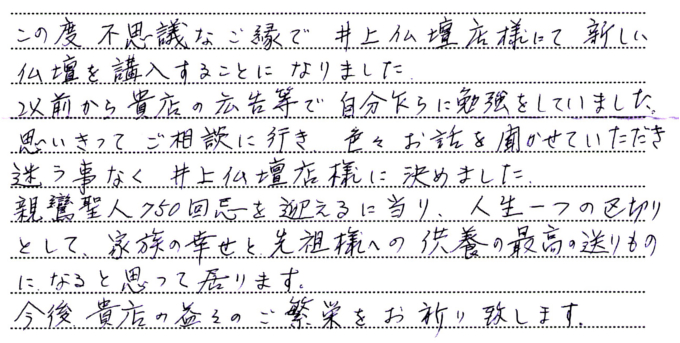 この度 不思議なご縁で 井上仏壇店様にて 新しい
仏壇を講入することに なりました
以前から貴店の広告等で 自分乍らに勉強をしていました。
思いきって ご相談に行き 色々お話を聞かせていただき
迷う事なく 井上仏壇店様に 決めました。
親鸞聖人750回忌を迎えるに当り、人生一つの区切り
として、家族の幸せと先祖様への供養の最高の送りもの
になると思って居ります。
今後、貴店の益々のご繁栄をお祈り致します。